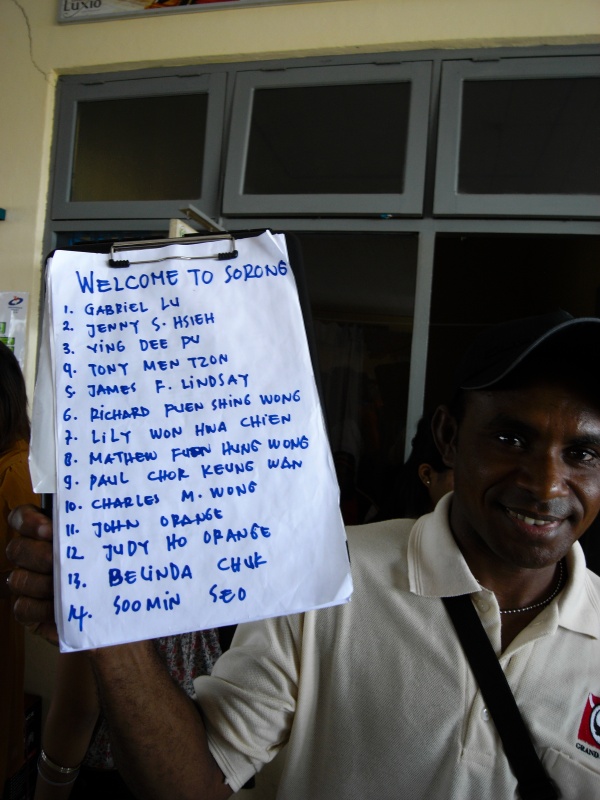 Luxio
WELCOME TO SORONG
1. GABRIEL LU
2. JENNY S. HSIEH
3. YING DEE PU
4. TONY MEN TZON
5. JAMES F. LINDSAY
6. RICHARD FUEN SHING WONG
7. LILY WON HWA CHIEN
8. MATHEW FUEN HUNG WONG
9. PAUL CHOR KEUNG WAN
10. CHARLES M. WONG
11. JOHN ORANGE
12 JUDY HO ORANGE
13. BELINDA CHUK
14. SOOMIN SEO
GRAND